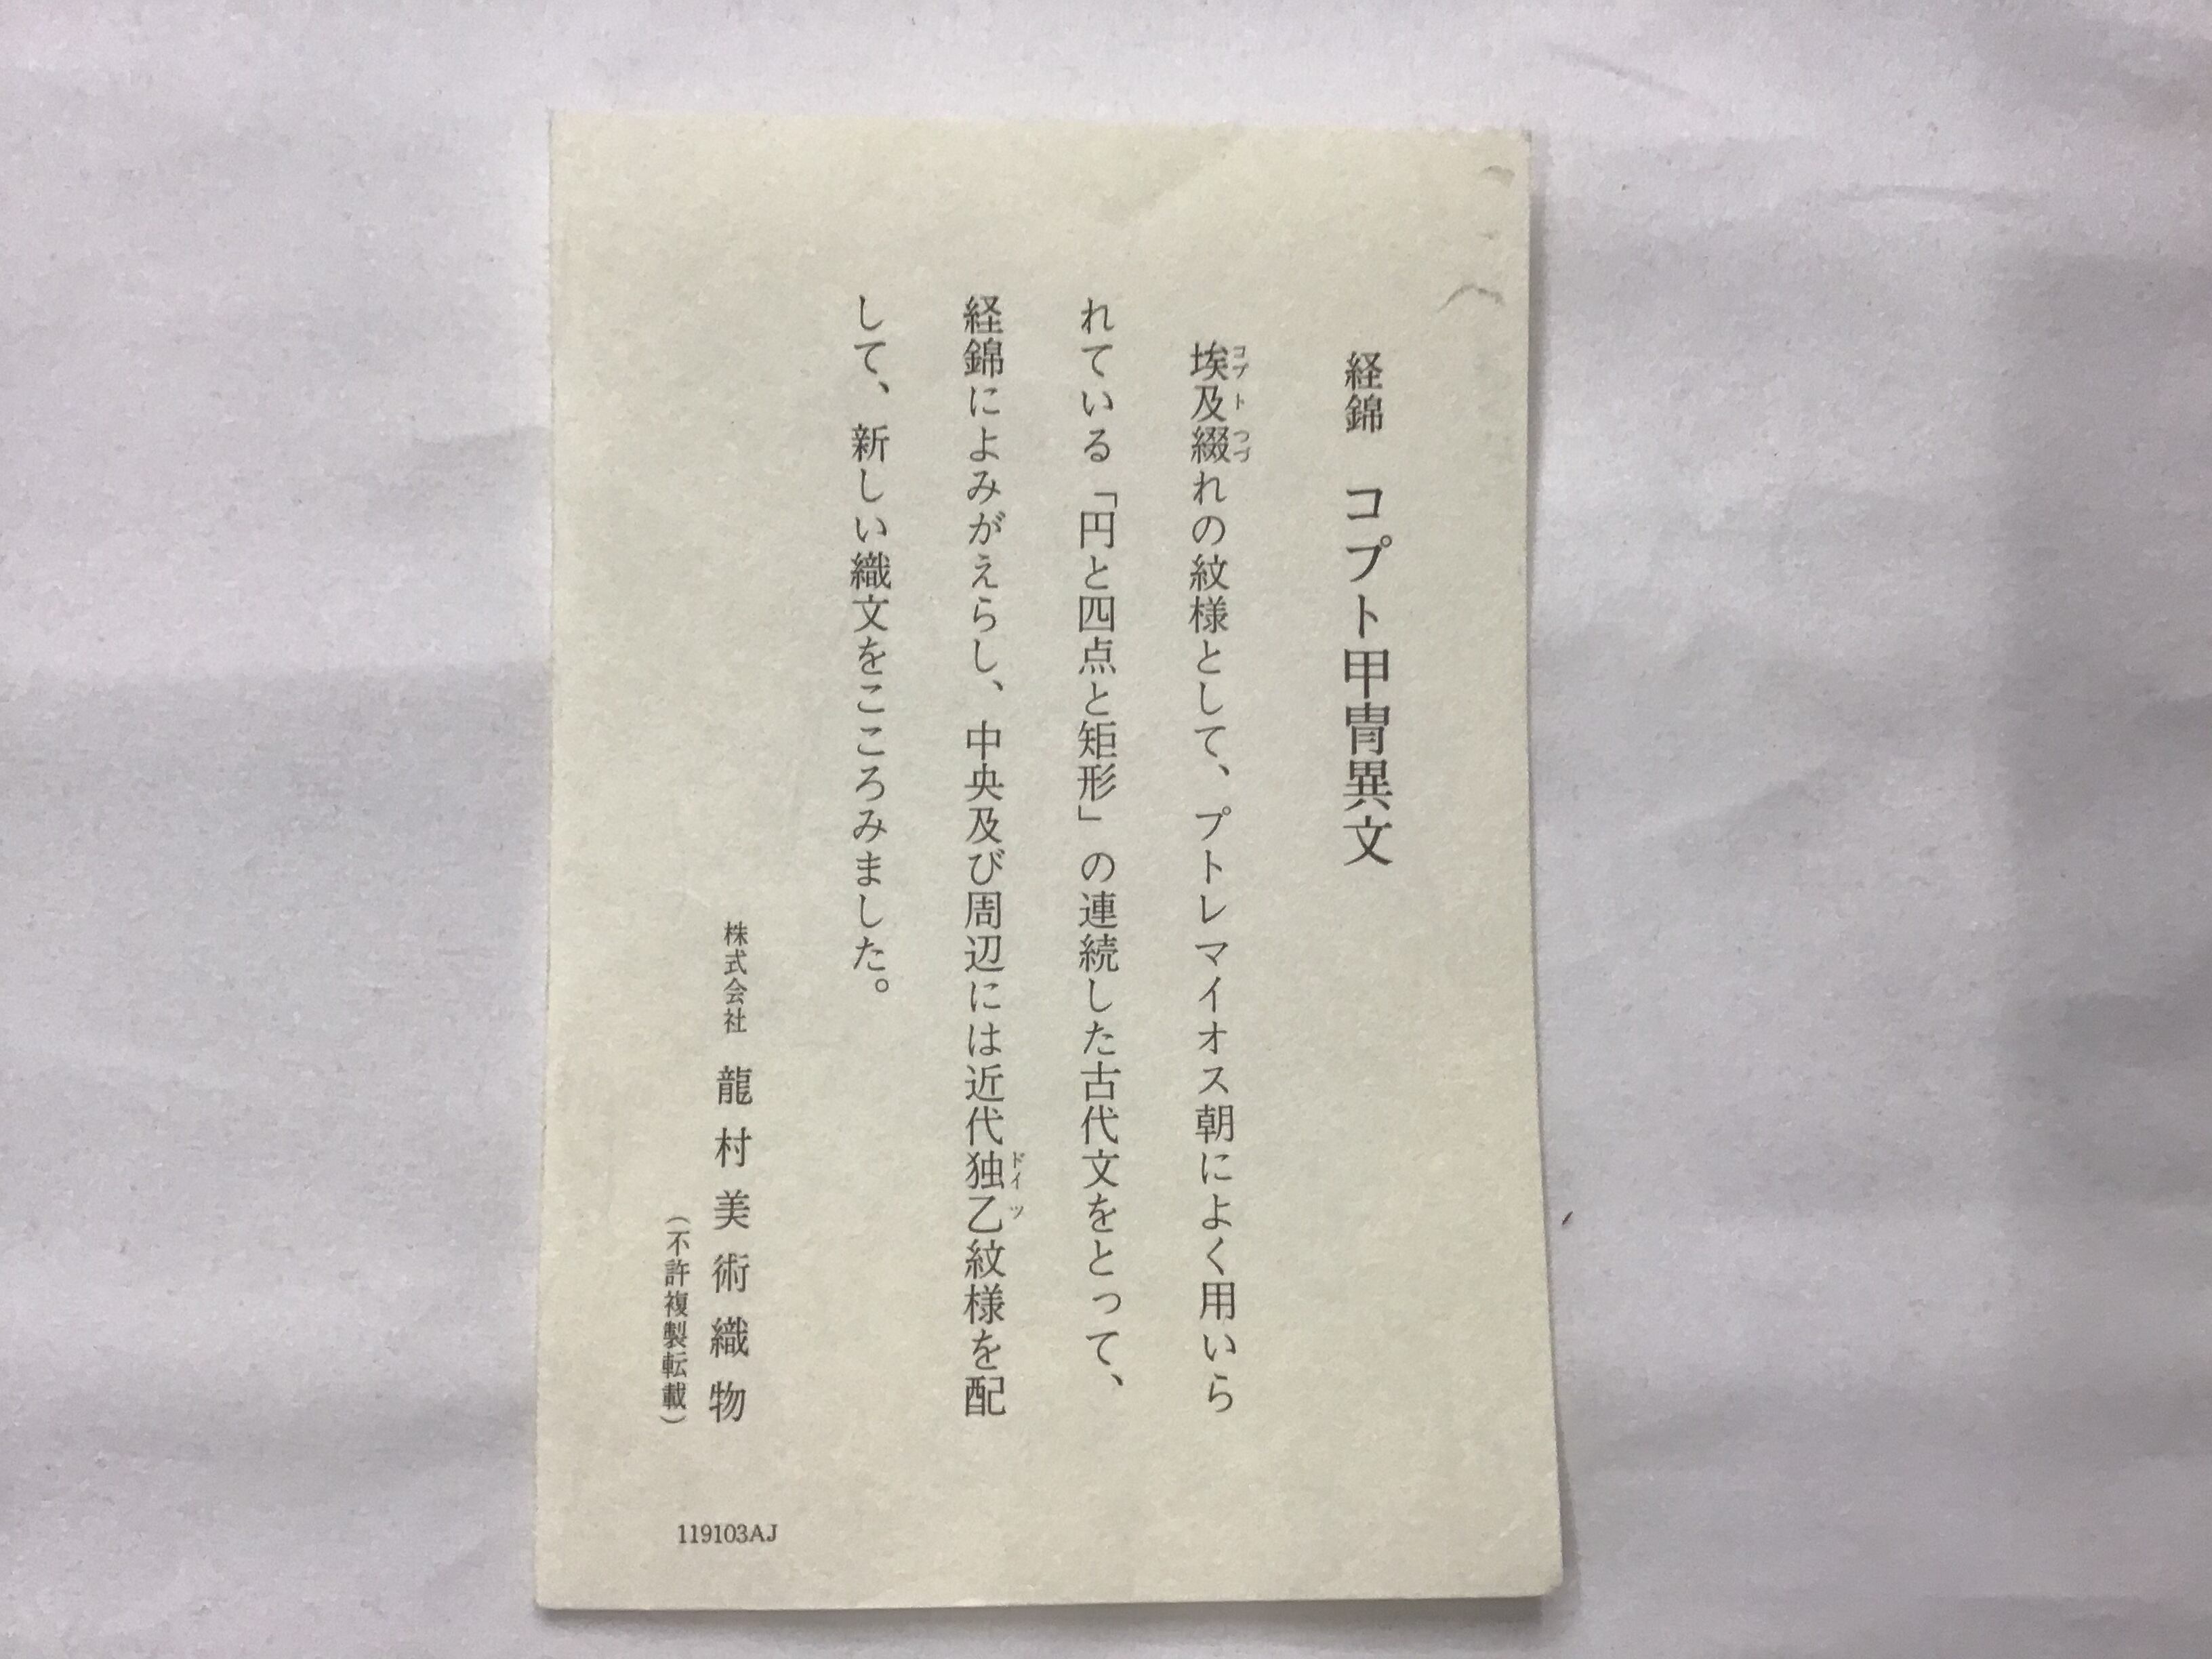 経錦　コプト甲冑異文
埃及綴れの紋様として、プトレマイオス朝によく用いら
コプト つづ
れている「円と四点と矩形」の連続した古代文をとって、
経錦によみがえらし、中央及び周辺には近代独乙紋様を配
ドイツ
して、新しい織文をこころみました。
株式会社　龍村美術織物
（不許複製転載）
119103AJ